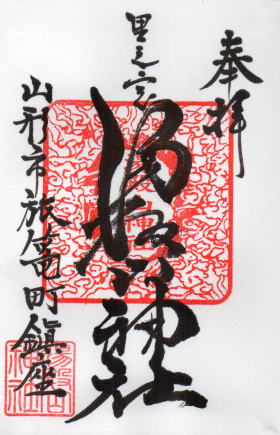 奉拝
里之宮
湯殿山神社
山形市旅篭町鎮座